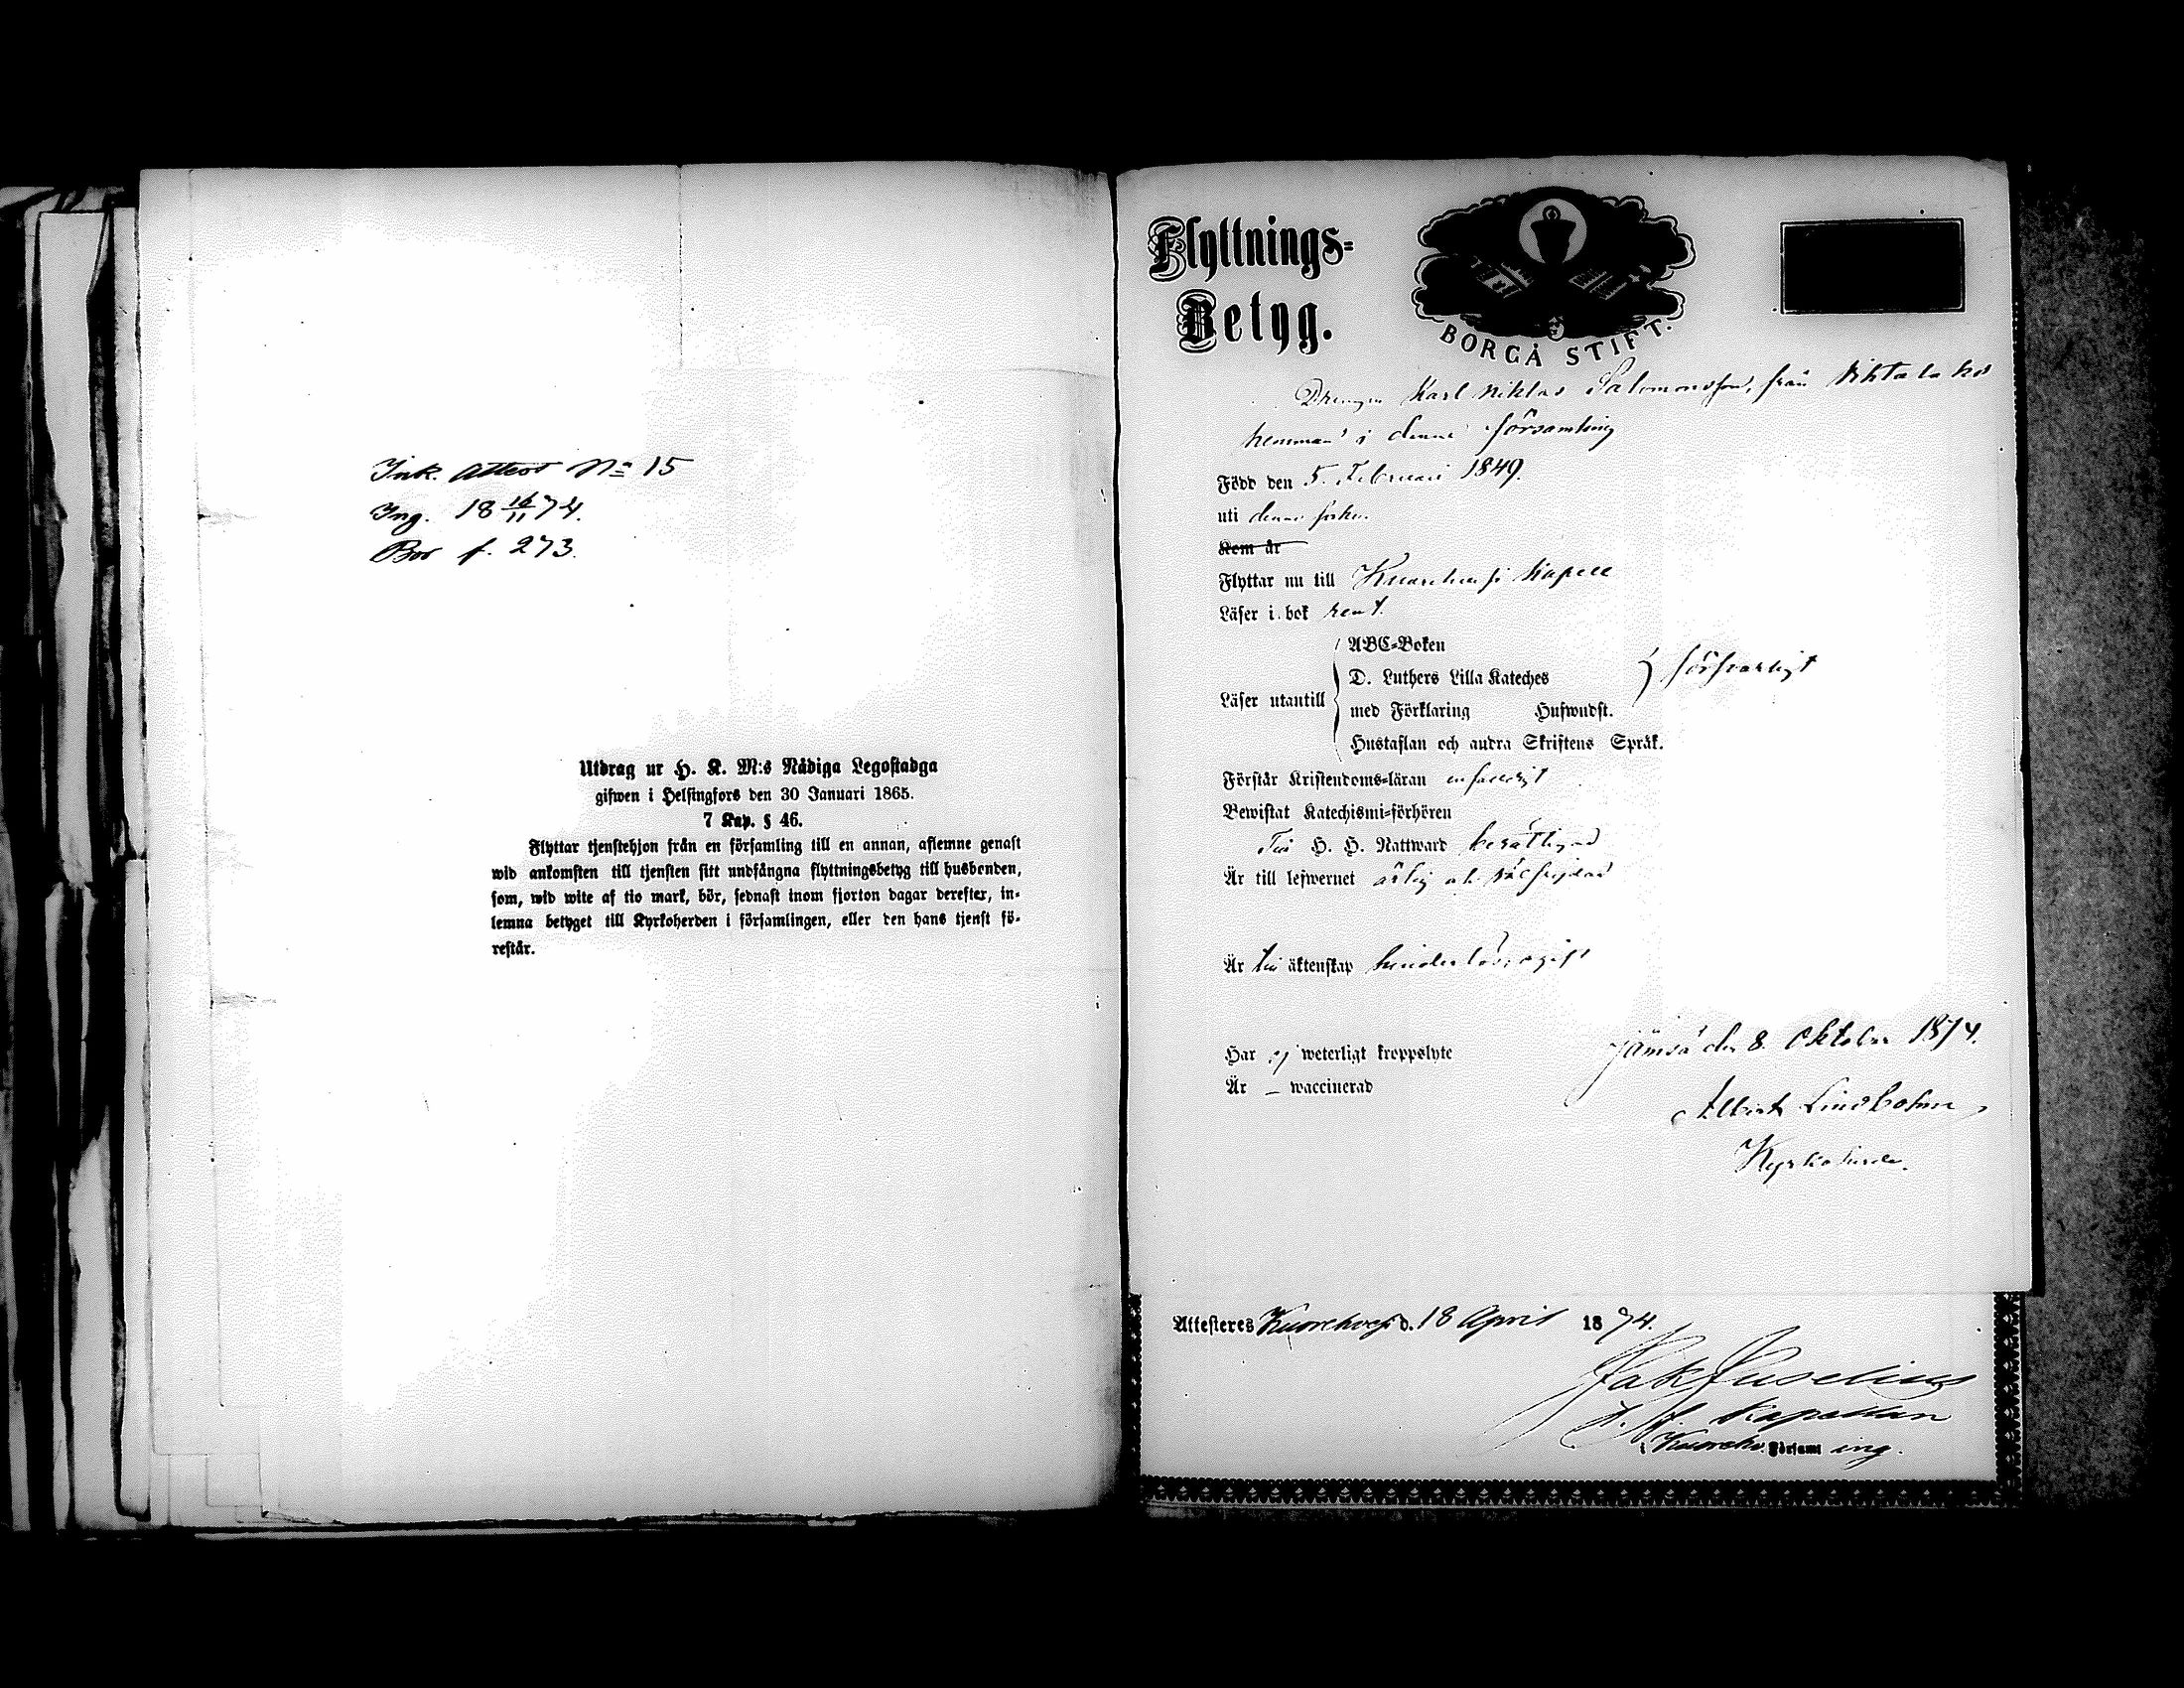 Ink. Attest No 15
Ing. 18 16/11 74.
Bor f. 273.
Utdrag ur H. K. M:s Nådiga Legostadga
gifwen i Helsingfors den 30 Januari 1865.
7 Kap. § 46.
Flyttar tjenstehjon från en församling till en annan, aflemne genast
wid ankomsten till tjensten sitt undfångna flyttningsbetyg till husbonden,
som, wid wite af tio mark, bör, sednast inom fjorton dagar derefter, in-
lemna betyget till Kyrkoherden i församlingen, eller den hans tjenst fö-
restår.
Flyttnings-
Betyg.
BORGÅ STIFT.
Drengen Karl Niklas Salomonsson, från
hemman i denna församling
Född den 5. Februari 1849.
uti denna
Kom år
Flyttar nu till Kuorehvesi Kapell
Läser i bok rent.
ABC-Boken
D. Luthers Lilla Kateches
Läser utantill med Förklaring Husuwudst.
Hustaflan och andra Skriftens Språk.
försvarligt
Förstår Kristendoms-läran enfaldigt
Bewistat Katechismi-förhören
Till H. H. Nattward berättigad
Är till lefwernet ärlig och välfrejdad
Är till äktenskap hinderlös, ogift
Har ej weterligt kroppslyte
Är – waccinerad
Jämsä den 8. Oktober 1874.
Albert Lindbohm
Kyrkoherde.
Attesteres Kuorehvesi d. 18 April 1874.
Jak Juselius
Kapellan
i Kuorehv. Församling.